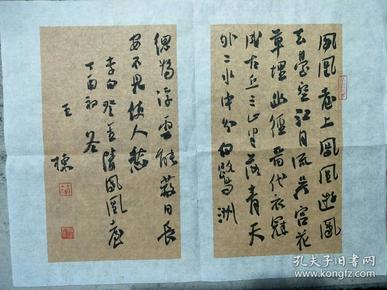 鳳凰臺上鳳凰遊鳳
去臺空江自流吳宮花
草埋幽徑晉代衣冠
成古丘三山半落青天
外二水中分白鷺洲
總為浮雲能蔽日長
安不見使人愁
李白登金陵鳳凰臺
丁酉初冬
王棟
孔夫子旧书网